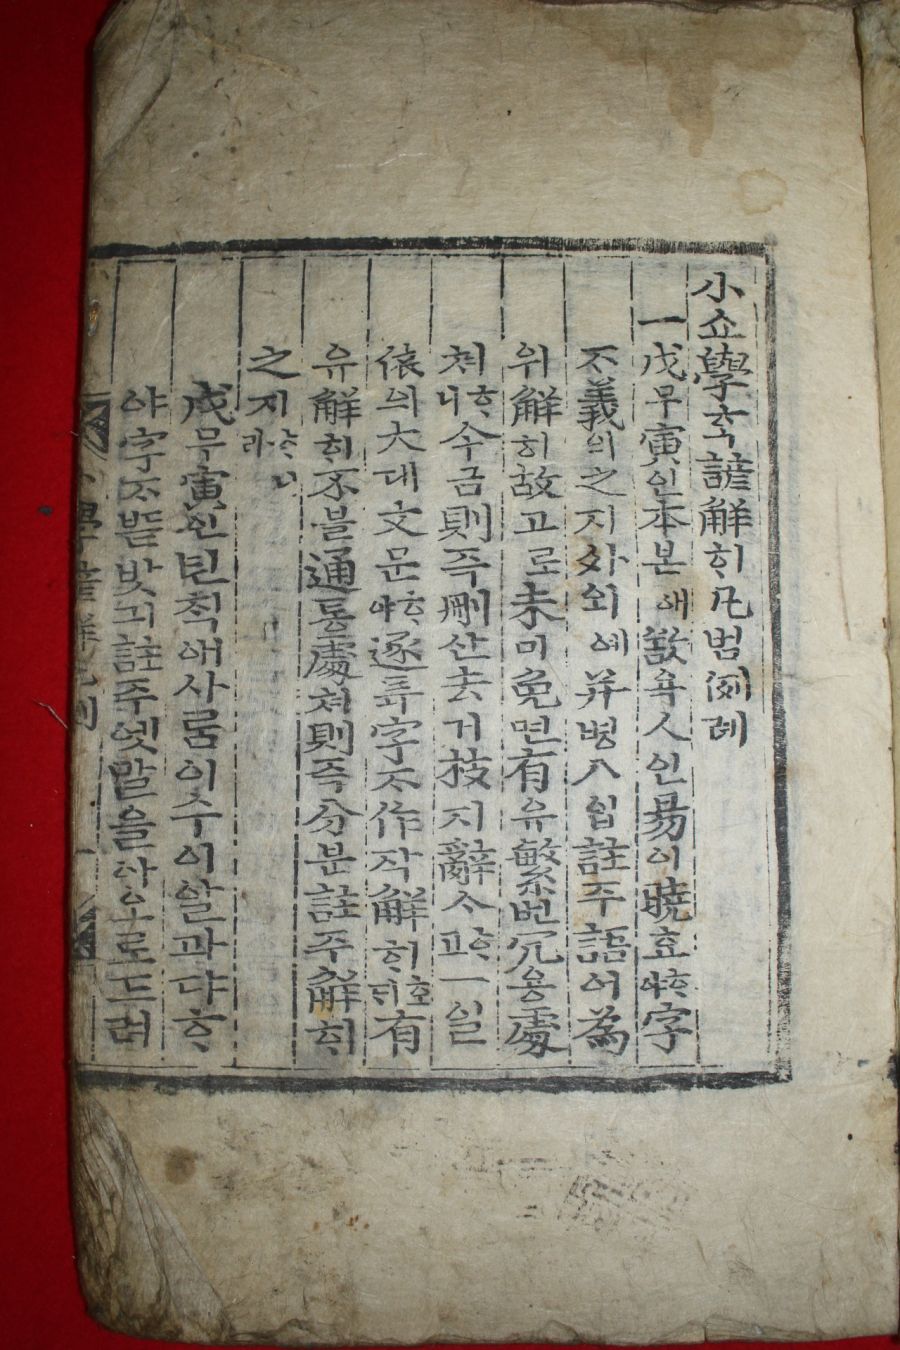 小쇼學ᄒᆞᆨ諺解ᄒᆡ凡범例례
一戊무寅인本본애欲욕人인易이曉효ᄒᆞ야字
ᄌᆞ義의之지外외예并병入입註주語어為
위解ᄒᆡ故고로未미免면有유繁번冗용處
쳐ᄒᆞ니今금則즉刪산去거枝지辭ᄉᆞᄒᆞ고一일
依의大대文문ᄒᆞ야逐튝字ᄌᆞ作작解ᄒᆡ호ᄃᆡ有
유解ᄒᆡ不블通통處쳐則즉分분註주解ᄒᆡ
之지ᄒᆞ니라
戊무寅인년칙애사ᄅᆞᆷ이수이알과댜ᄒᆞ
야字ᄌᆞᄠᅳᆮ밧긔註주엣말을아오로드려